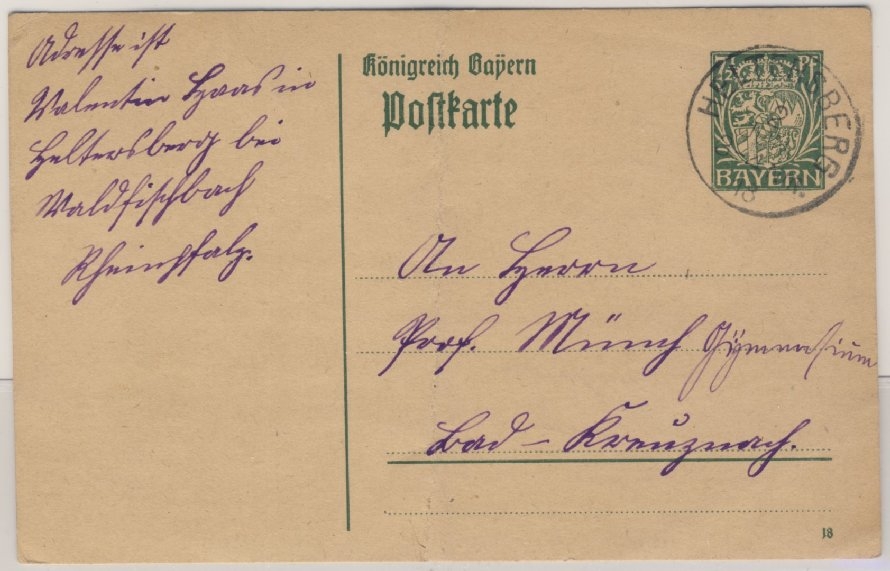 Adresse ist
Valentin Haas in
Heltersberg bei
Waldfischbach
Rheinpfalz.
Königreich Bayern
Postkarte
PF
HELTERSBERG
BAYERN
An Herrn
Prof. Münch Gymnasium
Bad-Kreuznach.
18